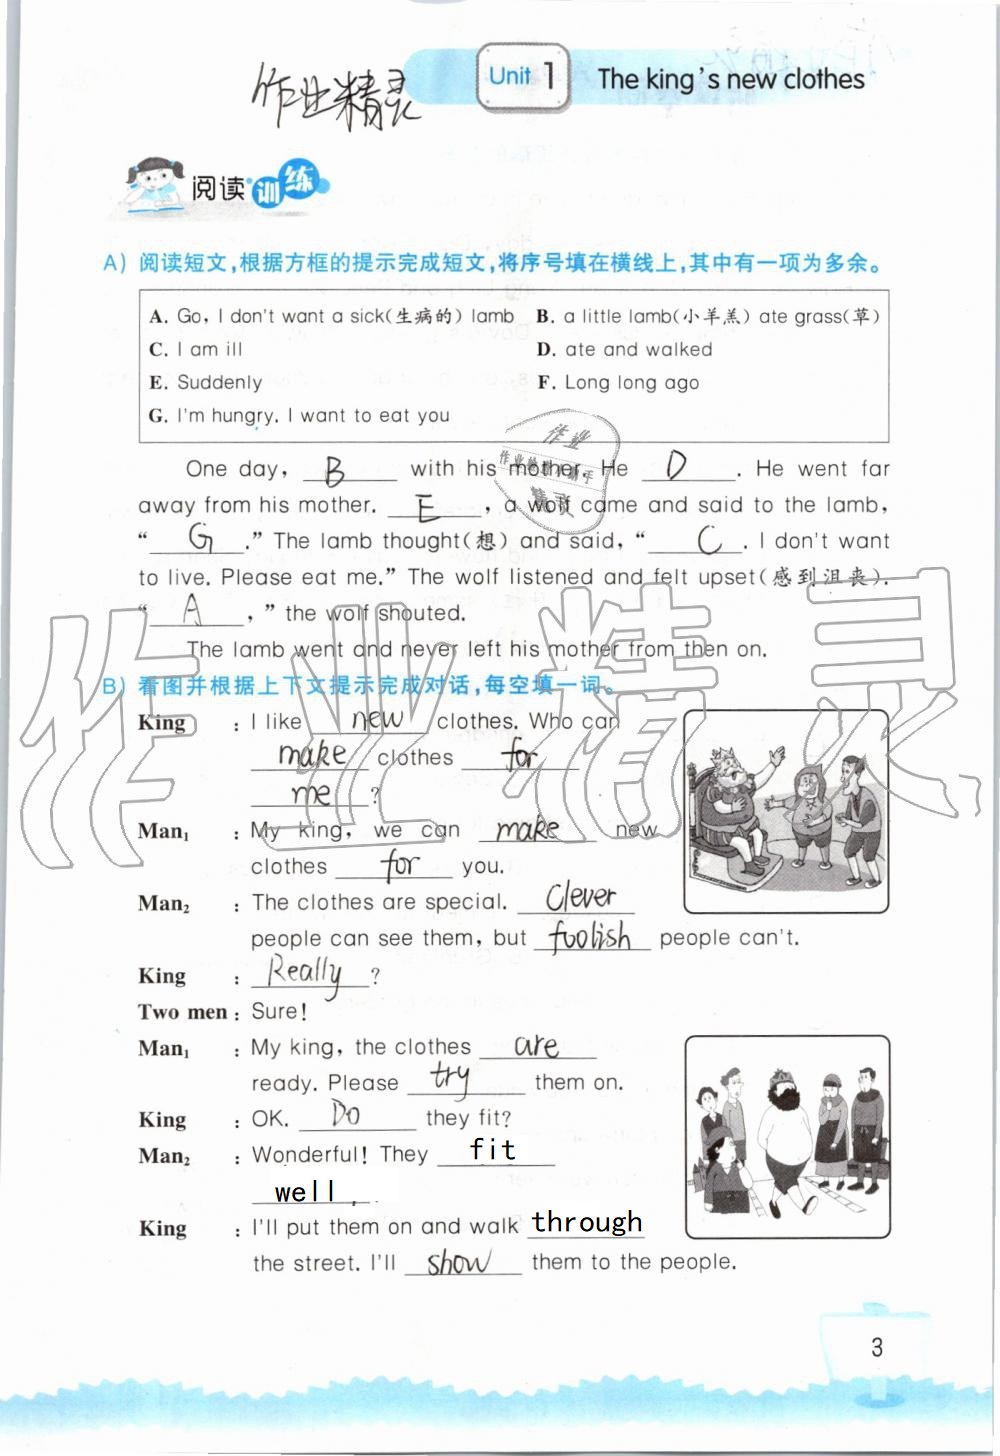 作业精灵
Unit 1 The king's new clothes
阅读训练
A) 阅读短文,根据方框的提示完成短文,将序号填在横线上,其中有一项为多余。
A. Go, I don't want a sick(生病的) lamb B. a little lamb(小羊羔) ate grass(草)
C. I am ill D. ate and walked
E. Suddenly F. Long long ago
G. I'm hungry. I want to eat you
One day, B with his mother. He D. He went far
away from his mother. E, a wolf came and said to the lamb,
“ G.” The lamb thought(想) and said, “ C. I don't want
to live. Please eat me.” The wolf listened and felt upset(感到沮丧).
“ A,” the wolf shouted.
The lamb went and never left his mother from then on.
B) 看图并根据上下文提示完成对话,每空填一词。
King : I like new clothes. Who can
make clothes for
me?
Man1 : My king, we can make new
clothes for you.
Man2 : The clothes are special. Clever
people can see them, but foolish people can't.
King : Really?
Two men : Sure!
Man1 : My king, the clothes are
ready. Please try them on.
King : OK. Do they fit?
Man2 : Wonderful! They fit
well.
King : I'll put them on and walk through
the street. I'll show them to the people.
3
作业精灵